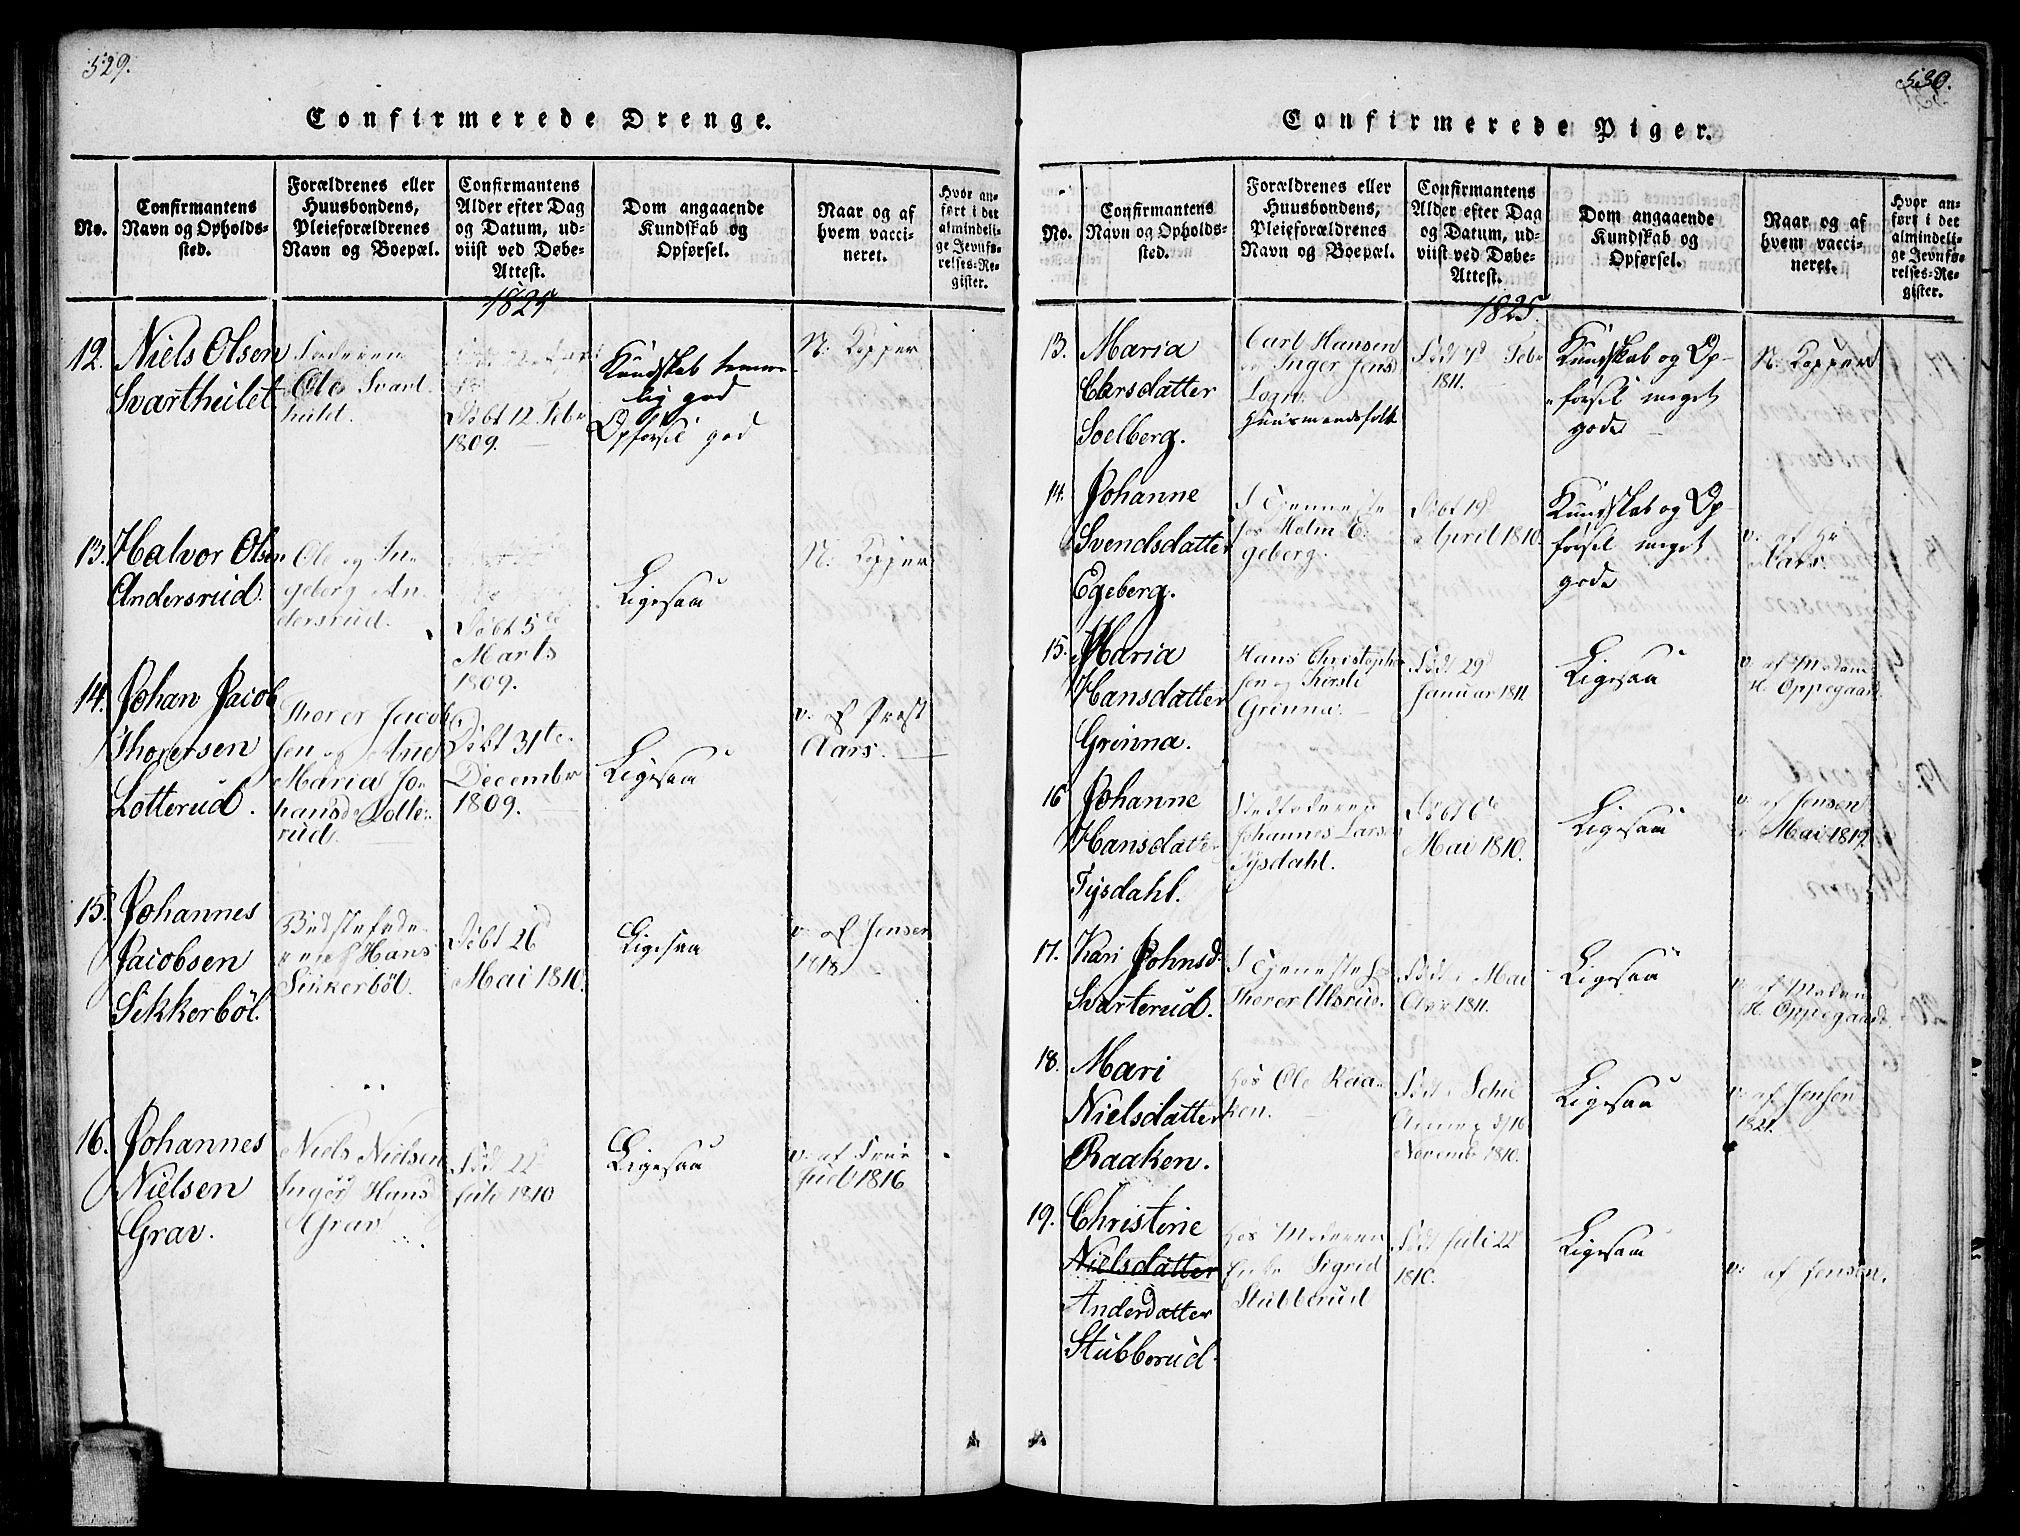 529.
Confirmerede Drenge.
No.
Confirmantens
Navn og Opholds-
sted.
Forældrenes eller
Huusbondens,
Pleieforældrenes
Navn og Boepæl.
Confirmantens
Alder efter Dag
og Datum, ud-
viist ved Døbe-
Attest.
Dom angaaende
Kundskab og
Opførsel.
Naar og af
hvem vacci-
neret.
Hvor an-
ført i det
almindeli-
ge Jevnfø-
relses-Re-
gister.
1825
12.
Niels Olsen
Svarthület
Faderen
Ole Svart
hület.
Döbt 12 Febr
1809.
Kundskab temme
lig god
Opførsel god
N. Kopper
13.
Halvor Olsen
Andersrud.
Ole og In-
geberg An-
dersrud.
Döbt 5te
Marts
1809.
Ligesaa
N. Kopper
14.
Johan Jacob
Thorersen
Lotterud.
Thorer Jacob
sen og Ane
Maria Jo-
hansd. Lotte-
rud.
Döbt 31te
December
1809.
Ligesaa
v. af Prost
Aars.
15.
Johannes
Jacobsen
Sikkerböl.
Bedstefade
ren Hans
Sinkerböl.
Döbt 26d
Mai 1810.
Ligesaa
v. af Jensen
1818.
16.
Johannes
Nielsen
Grav.
Niels Nielsen
Inger Hans
Grav
Föd 22d
Juli 1810
Ligesaa
v. af Frue
Juel 1816
530.
Confirmerede Piger.
No.
Confirmantens
Navn og Opholds-
sted.
Forældrenes eller
Huusbondens,
Pleieforældrenes
Navn og Boepæl.
Confirmantens
Alder efter Dag
og Datum, ud-
viist ved Døbe-
Attest.
Dom angaaende
Kundskab og
Opførsel.
Naar og af
hvem vacci-
neret.
Hvor an-
ført i det
almindeli-
ge Jevnfø-
relses-Re-
gister.
1825.
13.
Maria
Carsdatter
Soelberg.
Carl Hansen
og Inger Jensd
Huusmandsfolk
Föd 7d Febr
1811.
Kundskab og Op-
førsel meget
gode
N. Kopper
14.
Johanne
Svendsdatter
Egeberg.
I Tjenneste
hos Holm E-
geberg.
Döbt 19d
April 1810.
Kundskab og Op-
førsel meget
gode
v. af Hr
Aars.
15.
Maria
Hansdatter
Grinna.
Hans Christopher
sen og Kirsti
Grinna.
Föd 29d
Januar 1811.
Ligesaa
v. af Madam
H. Oppegaard.
16
Johanne
Hansdatter
Tysdahl.
Stedfaderen
Johannes Larsen
Tysdahl.
Döbt 6te
Mai 1810.
Ligesaa
v. af Jensen
Mai 1819.
17.
Kari Johnsd.
Svarterud.
I Tjeneste hos
Thorer Ulsrud.
Föd i Mai
1811.
Ligesaa
v. af Madam
H. Oppegaard.
18.
Mari
Nielsdatter
Raaken.
hos Ole Raa-
ken.
Föd i Schie
Annex d/16
Novemb 1810.
Ligesaa
v. af Jensen
1821.
19.
Christine
Nielsdatter
Anderdatter
Stubberud.
hos Moderen
Enke Sigrid
Stubberud
Föd Juli 22d
1810.
Ligesaa
v. af Jensen.